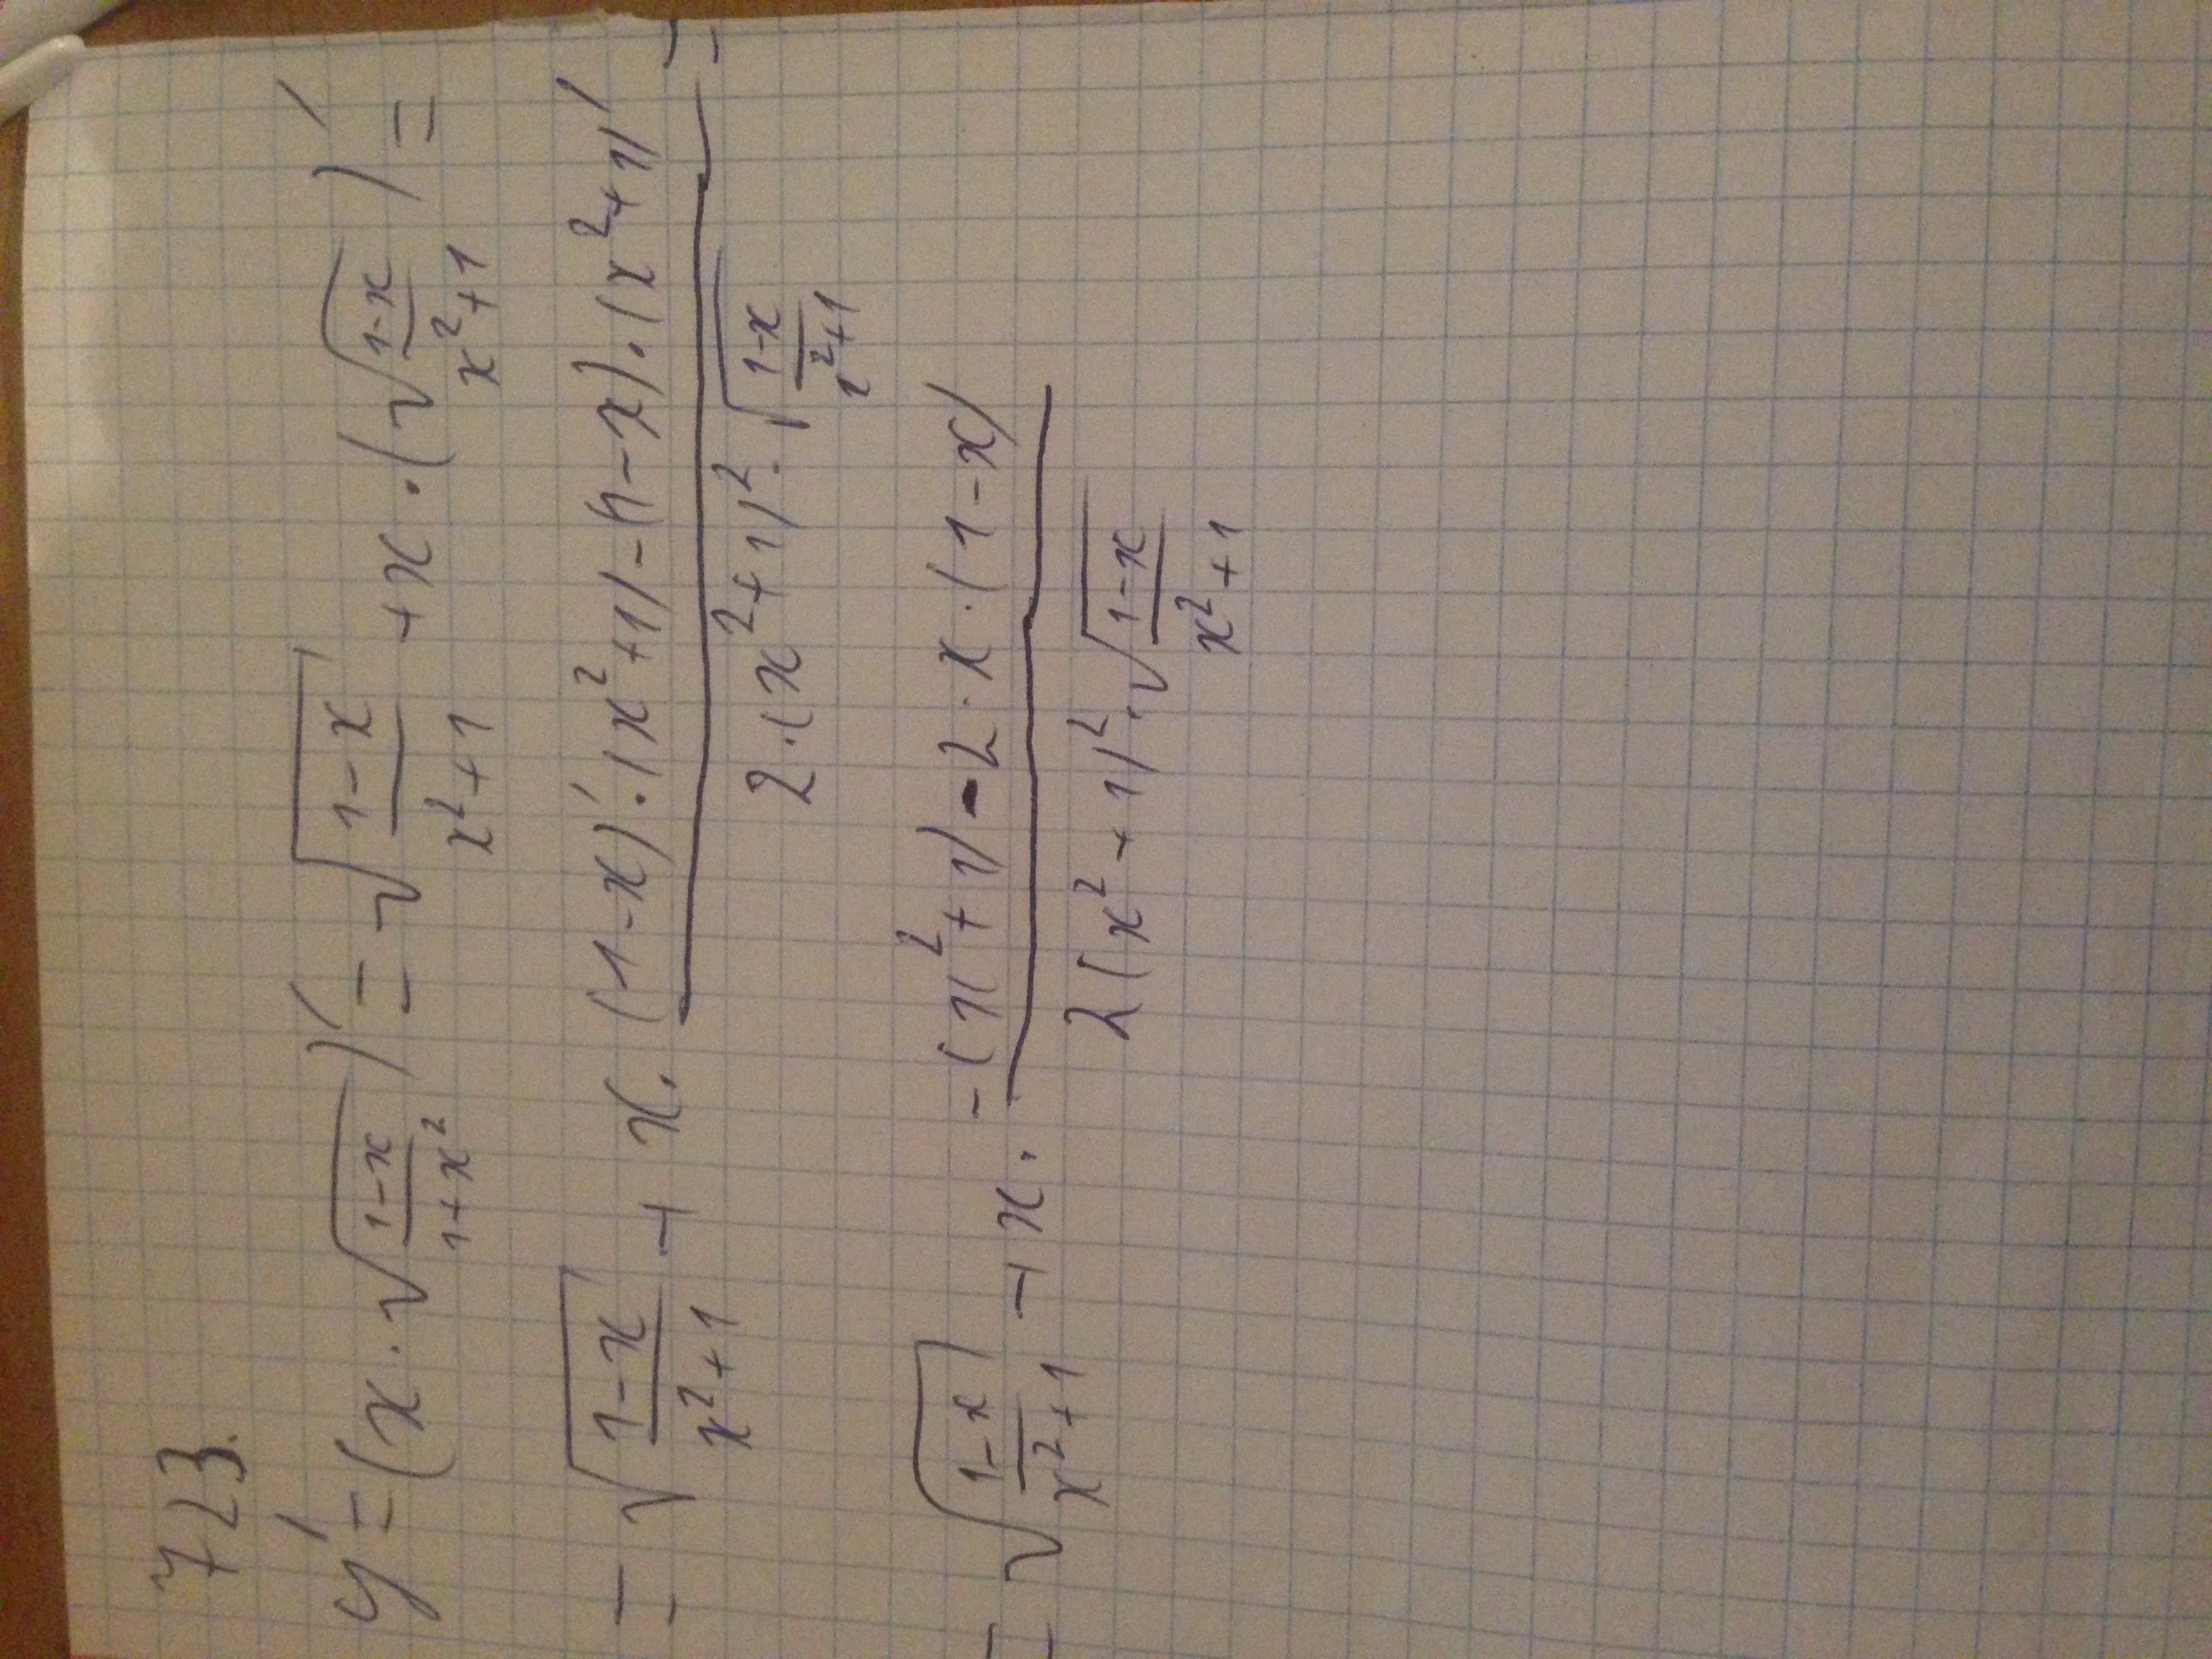 723.
y' = (x · √((1-x)/(1+x²)))' = √((1-x)/(x²+1)) + x · (√((1-x)/(x²+1)))' =
= √((1-x)/(x²+1)) + x · ((1-x)' · (x²+1) - (1-x) · (x²+1)')/(2 · (x²+1)² · √((1-x)/(x²+1))) =
= √((1-x)/(x²+1)) + x · (-(x²+1) - 2 · x · (1-x))/(2(x²+1)² · √((1-x)/(x²+1)))